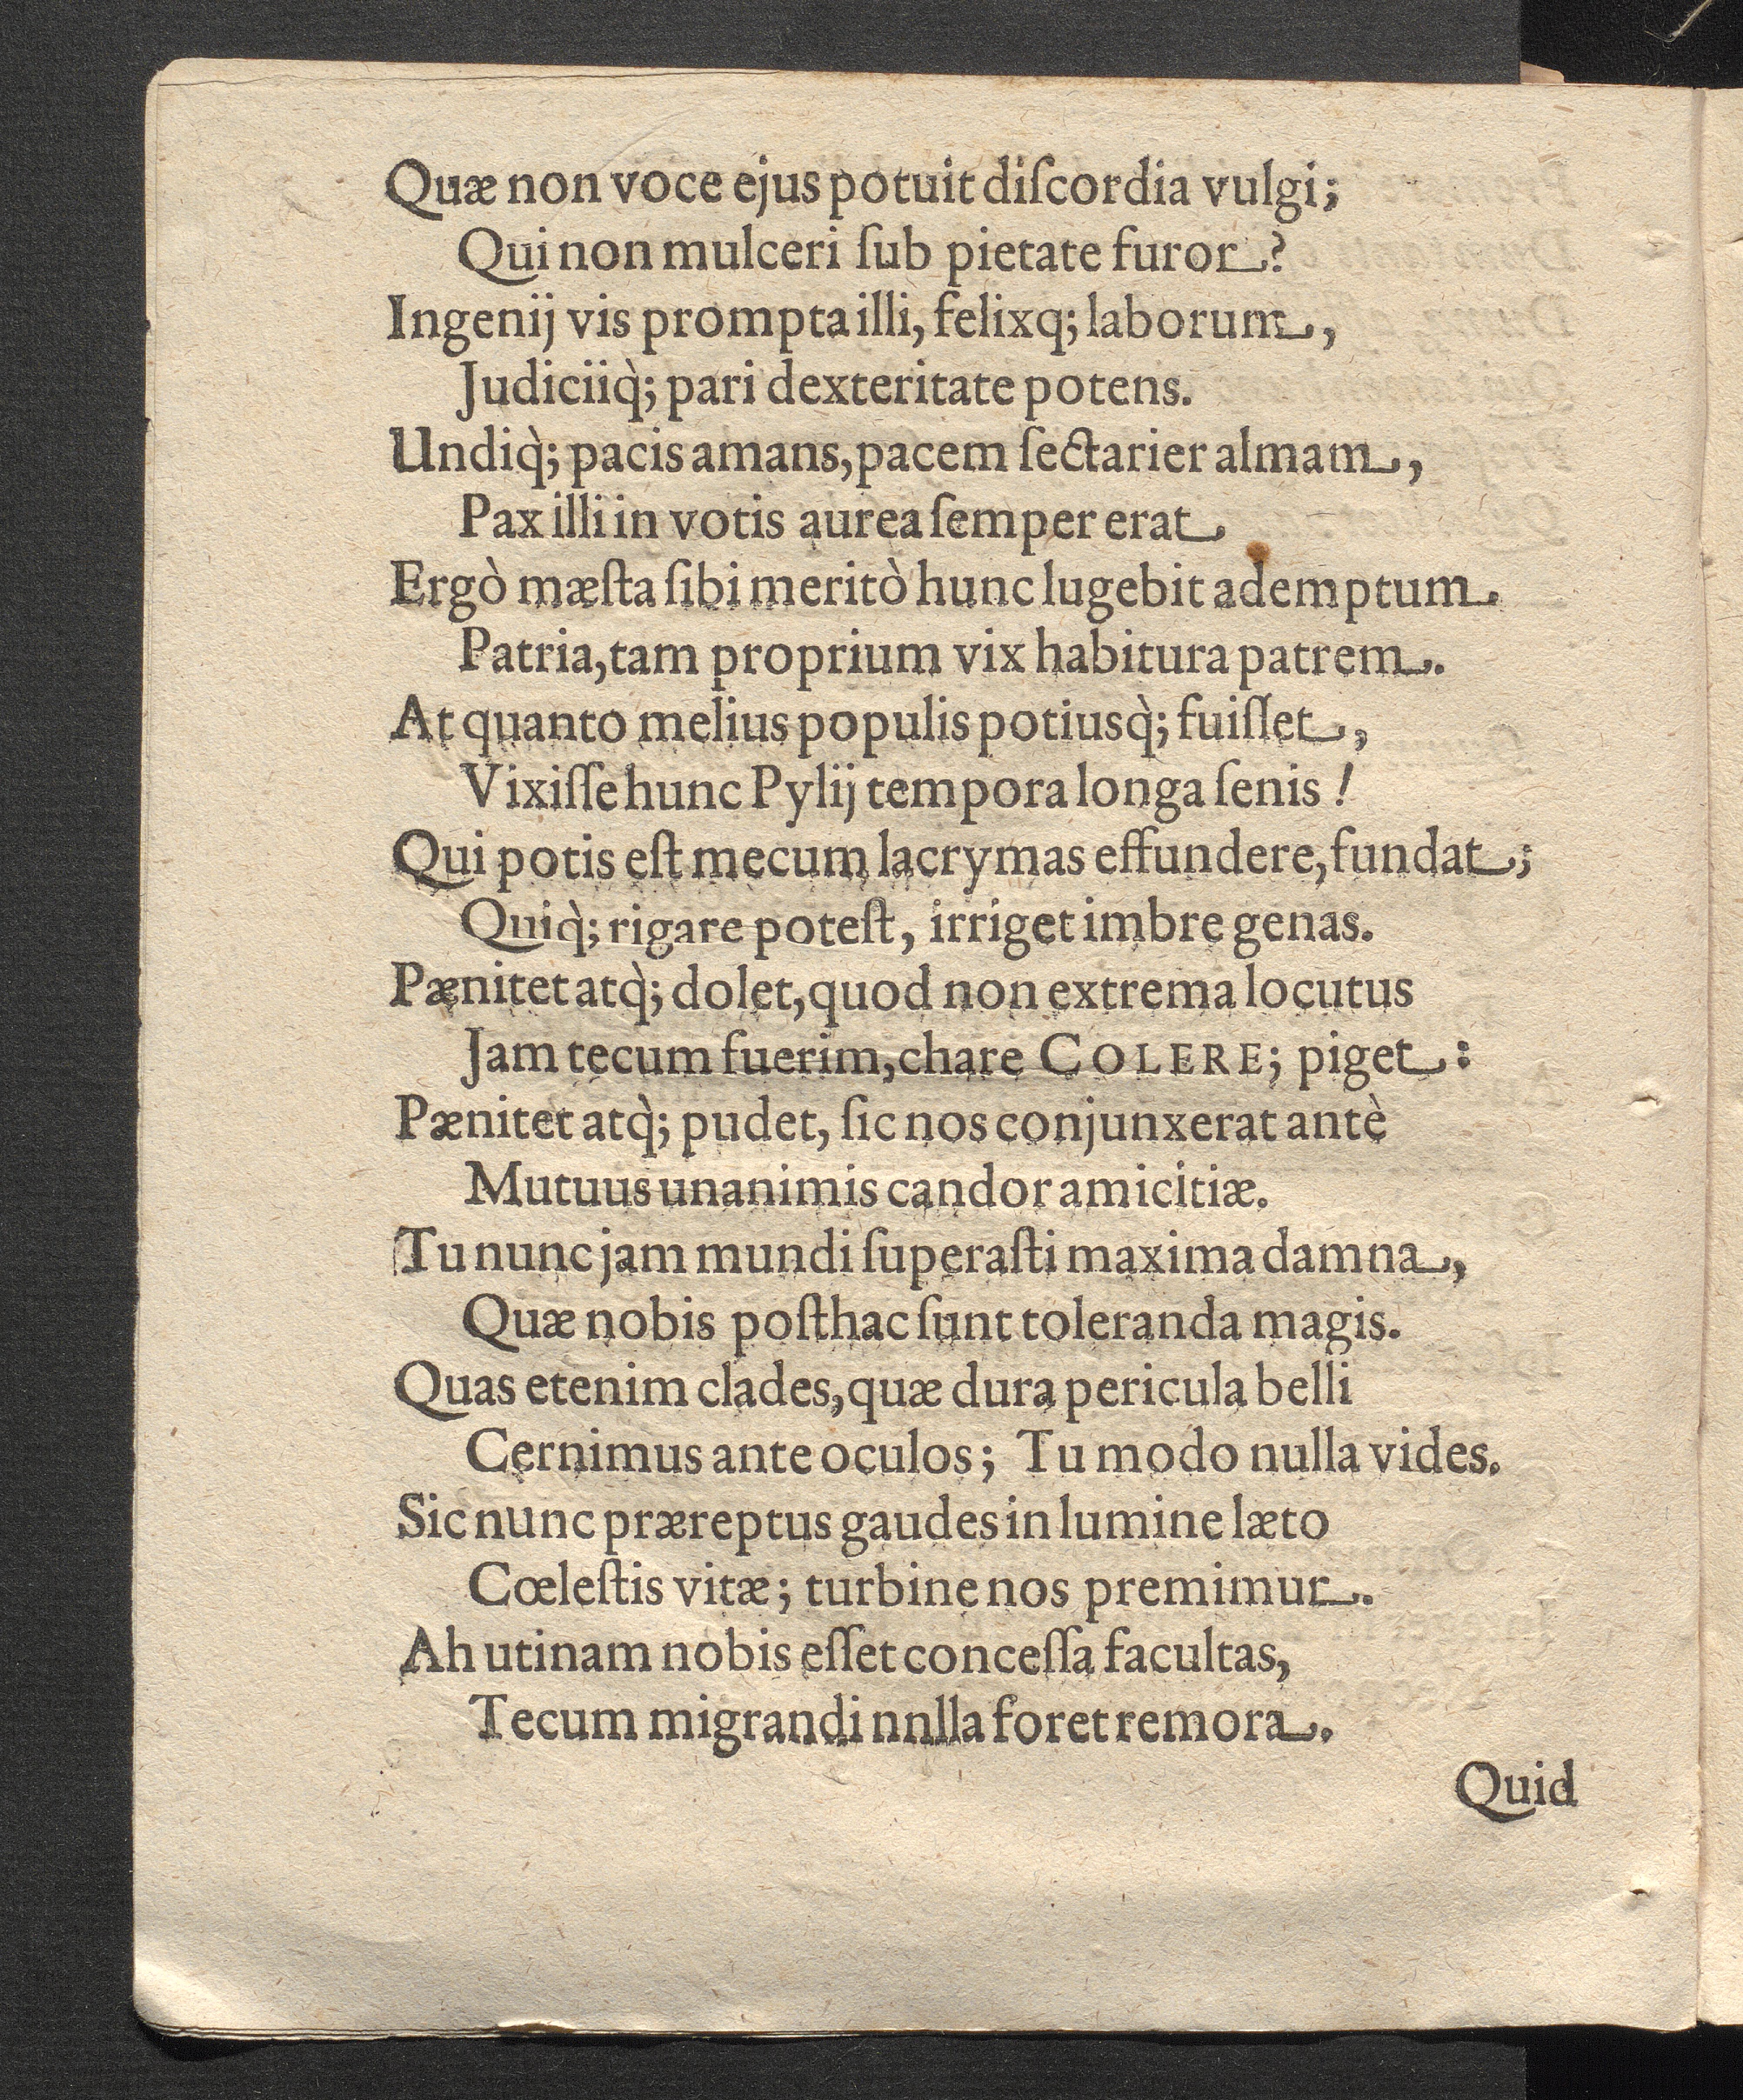 Quæ non voce ejus potuit diſcordia vulgi;
Qui non mulceri ſub pietate furor?
Ingenij vis prompta illi, felixq; laborum,
Judiciiq̀; pari dexteritate potens.
Undiq̀; pacis amans, pacem ſectarier almam,
Pax illi in votis aurea ſemper erat.
Ergò mæſta ſibi meritò hunc lugebit ademptum.
Patria, tam proprium vix habitura patrem.
At quanto melius populis potiusq̀; fuiſſet,
Vixiſſe hunc Pylij tempora longa ſenis!
Qui potis eſt mecum lacrymas effundere, fundat;
Quiq̀; rigare poteſt, irriget imbre genas.
Pænitet atq̀; dolet, quod non extrema locutus
Jam tecum fuerim, chare COLERE; piget:
Pænitet atq̀; pudet, ſic nos conjunxerat antè
Mutuus unanimis candor amicitiæ.
Tu nunc jam mundi ſuperaſti maxima damna,
Quæ nobis poſthac ſunt toleranda magis.
Quas etenim clades, quæ dura pericula belli
Cernimus ante oculos; Tu modo nulla vides.
Sic nunc præreptus gaudes in lumine læto
Cœleſtis vitæ; turbine nos premimur.
Ah utinam nobis eſſet conceſſa facultas,
Tecum migrandi nnlla foret remora.
Quid